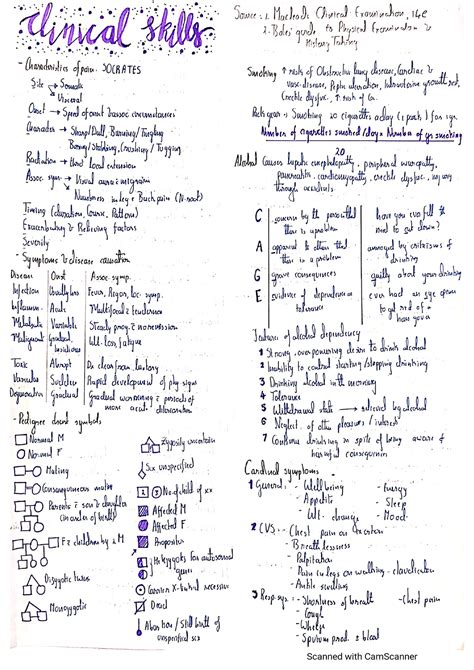 Clinical Skills
- Characteristics of pain: SOCRATES
Site → Somatic
→ Visceral
Onset → Speed of onset & assoc circumstances
Character → Sharp/Dull, Burning/Tingling
Boring/Stabbing, Crushing/Tugging
Radiation → local extension
Assoc. symp. → Visual aura in migraine
→ Numbness in leg & Back pain (N-root)
Timing (duration, Course, Pattern)
Exacerbating & Relieving factors
Severity
- Symptoms & disease causation
Disease Onset Assoc. symp.
Infection Usually hrs Fever, Rigors, loc. symp.
Inflamm. Acute
Metabolic Variable Steady prog.
Malignant Gradual, insidious Wt. loss, fatigue
Toxic Abrupt
Vascular Sudden Rapid development of phy. signs
Degenerative Gradual Gradual worsening & periods of
more acute deterioration
- Pedigree chart symbols
Normal M
Normal F
Mating
Consanguineous mating
Parents & son & daughter
(in order of birth)
F & children by 2 M
Dizygotic twins
Monozygotic
Zygosity uncertain
Sex unspecified
No. of child of sex
Affected M
Affected F
Propositus
Heterozygotes for autosomal
genes
Carrier X-linked recessive
Dead
Abortion / Still birth of
unspecified sex
Source: 1. Macleod's Clinical Examination, 14e
2. Bates' guide to Physical Examination &
History Taking
Smoking ↑ risk of Obstructive lung disease, Cardiac &
vasc. disease, Peptic ulceration, Intrauterine growth
Erectile dysfxn, ↑ risk of Ca.
Pack year = Smoking 20 cigarettes a day (1 pack) for 1 yr.
Number of cigarettes smoked/day × Number of yrs smoking
20
Alcohol Causes hepatic encephalopathy, peripheral neuropathy,
pancreatitis, cardiomyopathy, erectile dysfxn, injury
through accidents.
C concern by the person that there is a problem have you ever felt the need to cut down?
A apparent to others that there is a problem annoyed by criticisms of drinking
G grave consequences guilty about your drinking
E evidence of dependence or tolerance ever had an eye opener to get rid of a hangover
Features of alcohol dependency
1 Strong, overpowering desire to drink alcohol
2 Inability to control starting/stopping drinking
3 Drinking alcohol in the morning
4 Tolerance
5 Withdrawal state → relieved by alcohol
6 Neglect of other pleasures / interests
7 Continue drinking in spite of being aware of
harmful consequences
Cardinal symptoms
1 General: - Well being - Energy
- Appetite - Sleep
- Wt. change - Mood
2 CVS: - Chest pain on exertion
- Breathlessness
- Palpitation
- Pain in legs on walking - claudication
- Ankle swelling
3 Resp. sys: - Shortness of breath - Chest pain
- Cough
- Wheeze
- Sputum prod. & blood
Scanned with CamScanner